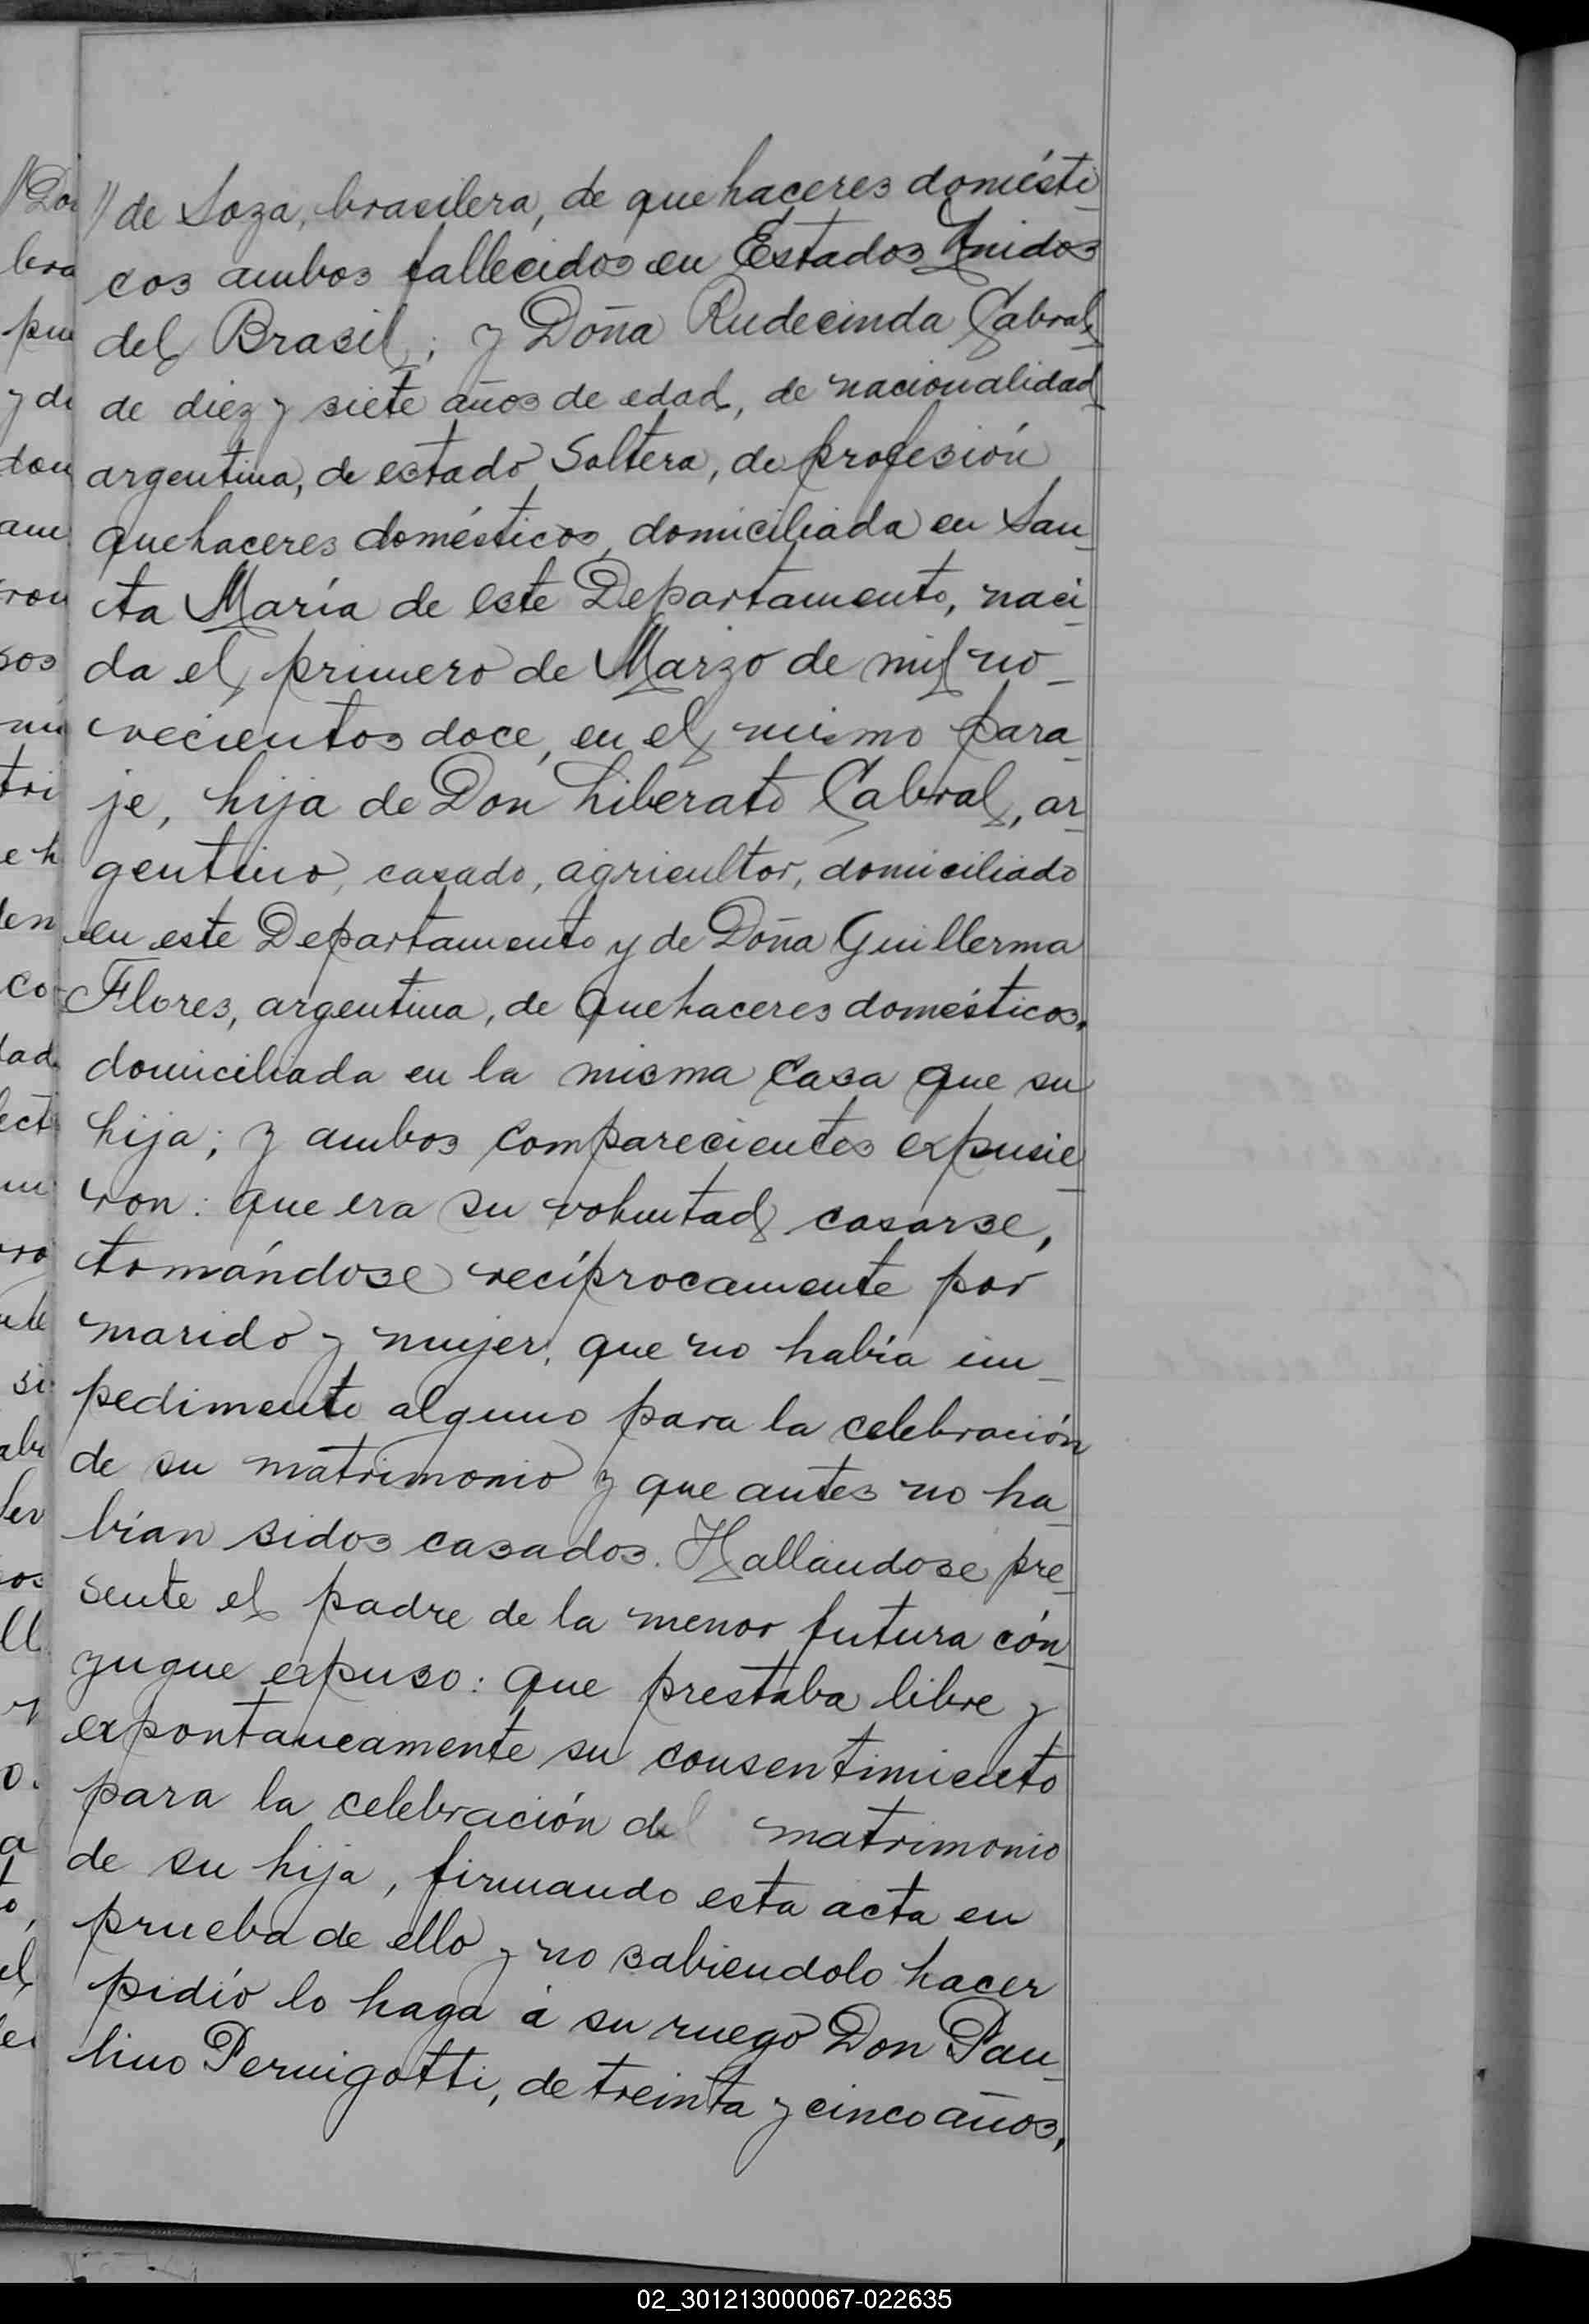 // de Soza, brasilera, de quehaceres domésti-
cos ambos fallecidos en Estados Unidos
del Brasil; y Doña Rudecinda Cabral,
de diez y siete años de edad, de nacionalidad
argentina, de estado Soltera, de profesión
quehaceres domésticos, domiciliada en San-
ta María de este Departamento, naci-
da el primero de Marzo de mil no-
vecientos doce, en el mismo para-
je, hija de Don Liberato Cabral, ar-
gentino, casado, agricultor, domiciliado
en este Departamento y de Doña Guillerma
Flores, argentina, de quehaceres domésticos,
domiciliada en la misma casa que su
hija; y ambos comparecientes expusie-
ron: que era su voluntad casarse,
tomándose recíprocamente por
marido y mujer, que no había im-
pedimento alguno para la celebración
de su matrimonio y que antes no ha-
bían sidos casados. Hallándose pre-
sente el padre de la menor futura cón-
yugue expuso: que prestaba libre y
expontaneamente su consentimiento
para la celebración del matrimonio
de su hija, firmando esta acta en
prueba de ello y no sabiendolo hacer
pidió lo haga á su ruego Don Pau-
lino Pernigotti, de treinta y cinco años,
02_301213000067-022635